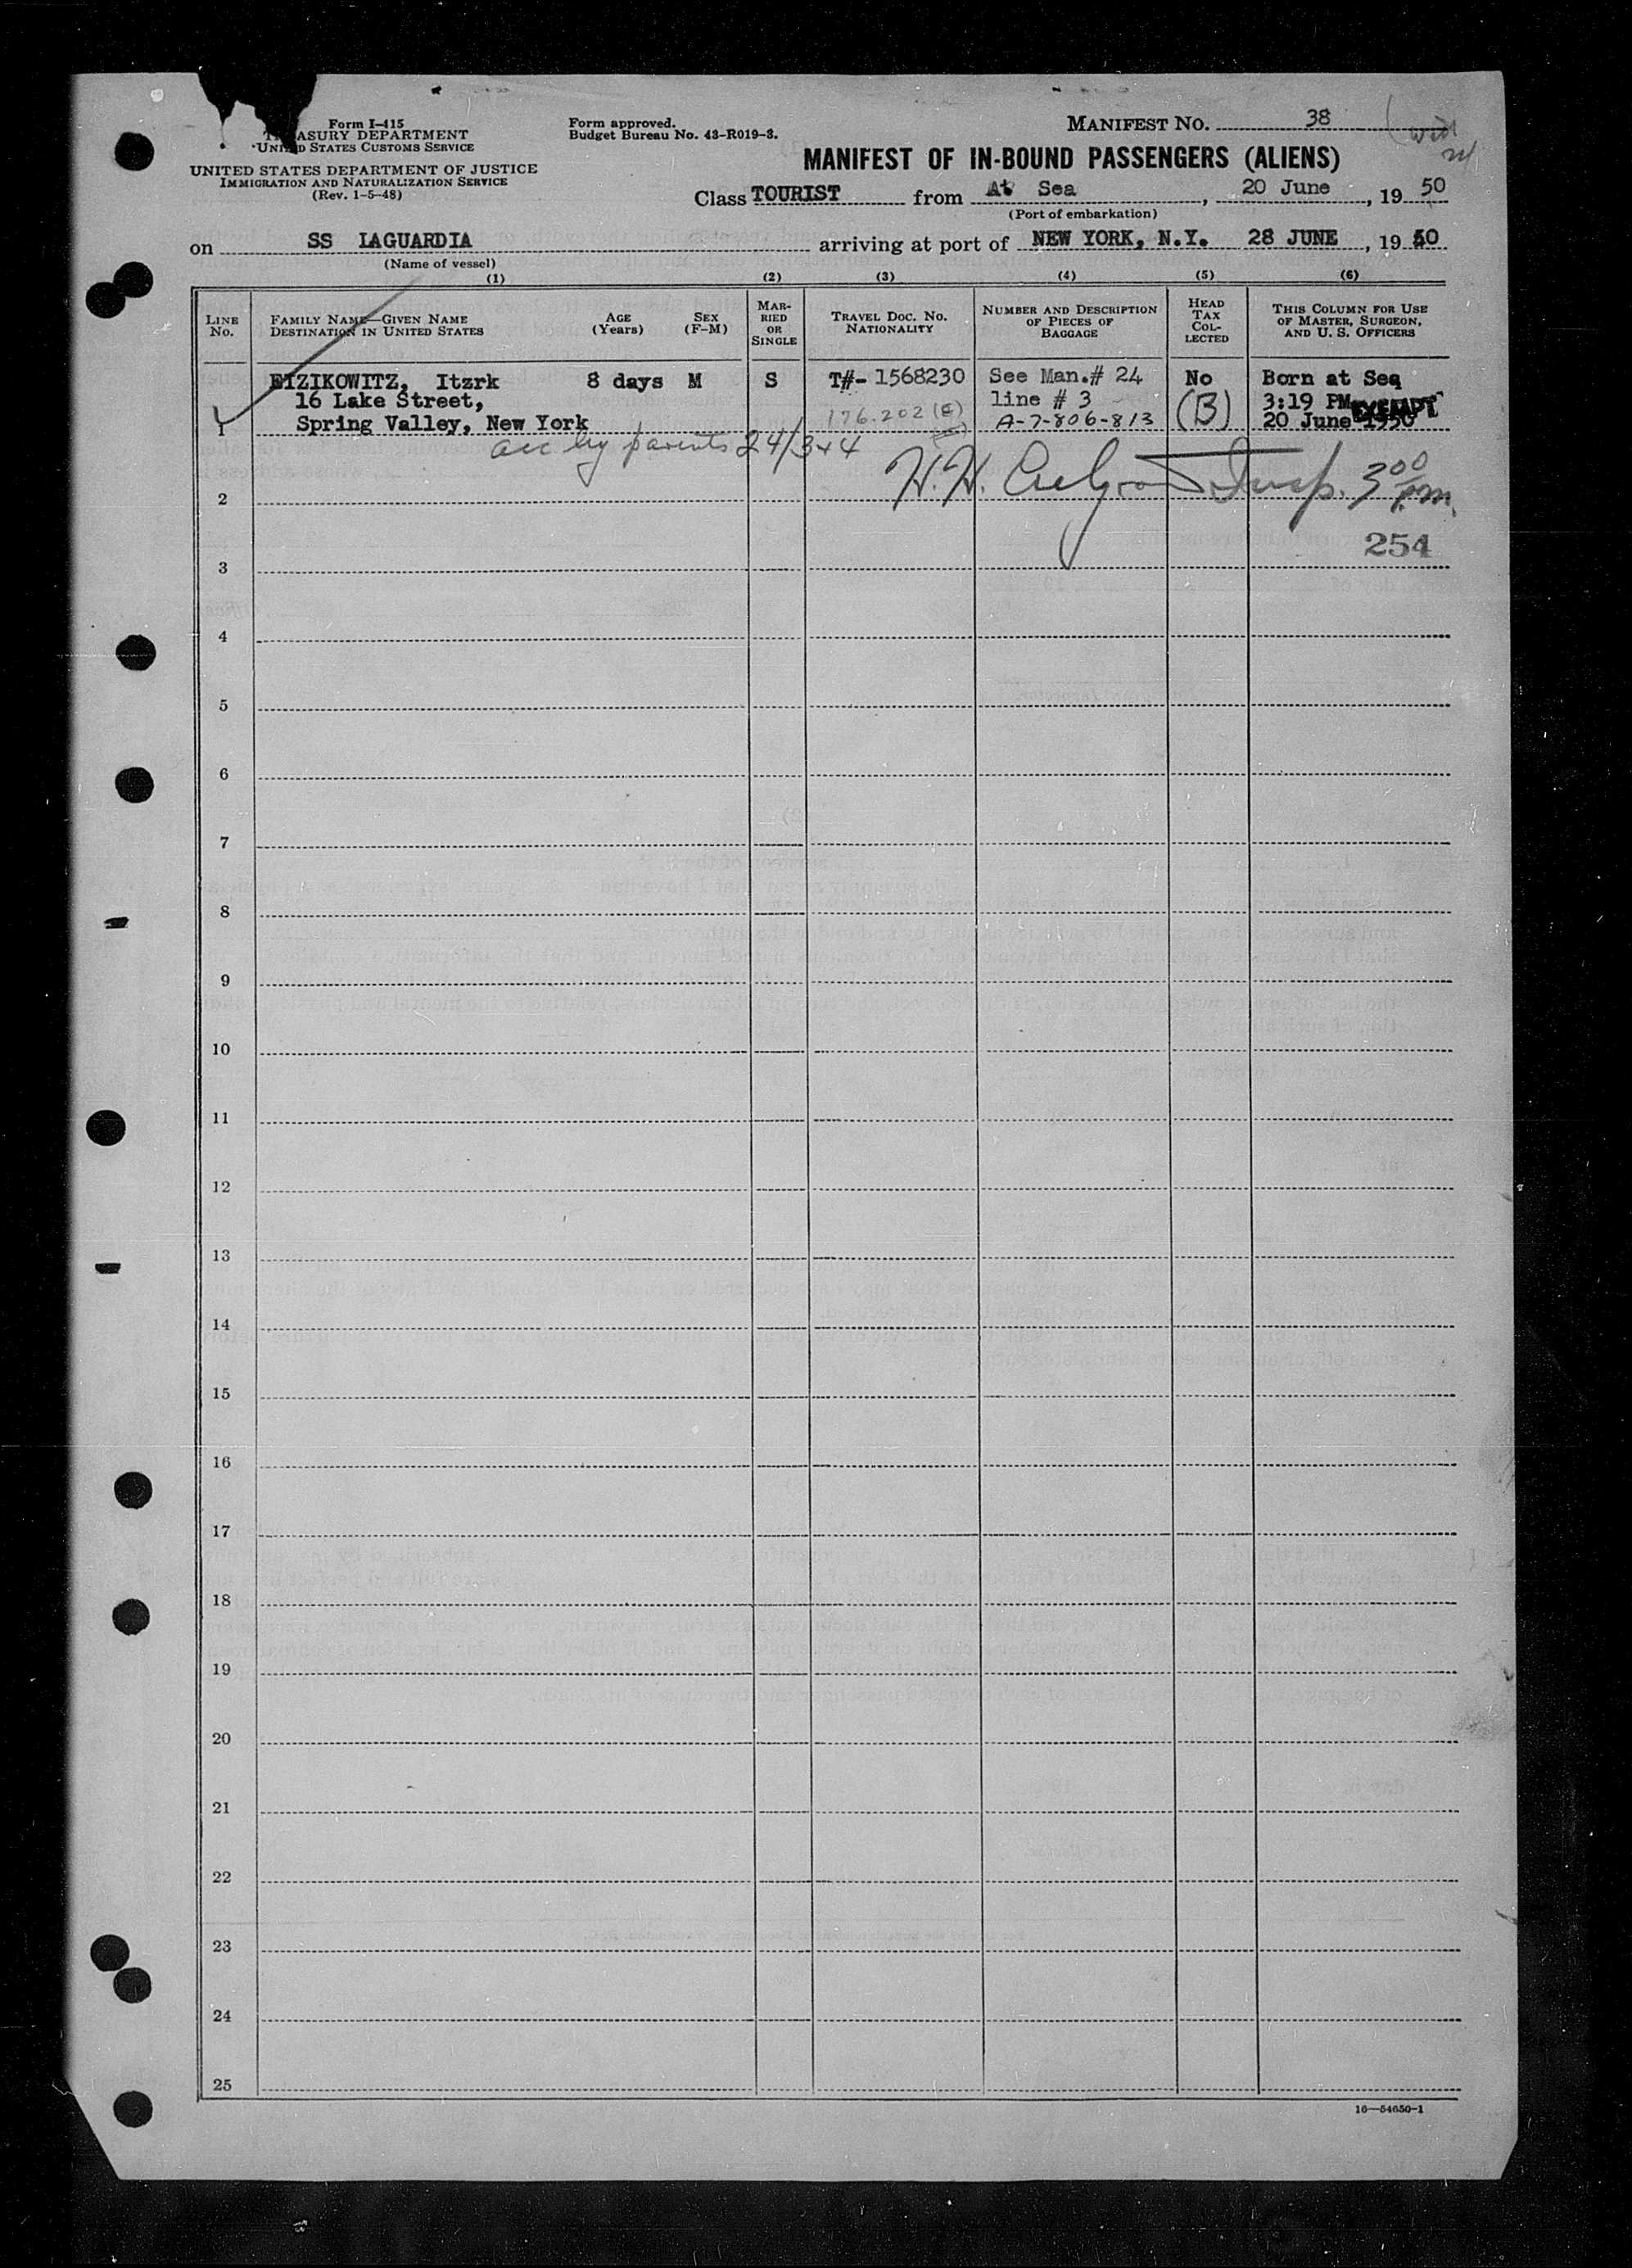 Form I-415
TREASURY DEPARTMENT
UNITED STATES CUSTOMS SERVICE
UNITED STATES DEPARTMENT OF JUSTICE
IMMIGRATION AND NATURALIZATION SERVICE
(Rev. 1-5-48)
Form approved.
Budget Bureau No. 43-R019-3.
MANIFEST No. 38
MANIFEST OF IN-BOUND PASSENGERS (ALIENS)
Class TOURIST from At Sea, 20 June, 19 50
(Port of embarkation)
on SS LAGUARDIA arriving at port of NEW YORK, N.Y. 28 JUNE, 19 50
(Name of vessel)
(1) (2) (3) (4) (5) (6)
LINE No.
FAMILY NAME—GIVEN NAME
DESTINATION IN UNITED STATES
AGE (Years)
SEX (F-M)
MARRIED OR SINGLE
TRAVEL DOC. NO.
NATIONALITY
NUMBER AND DESCRIPTION OF PIECES OF BAGGAGE
HEAD TAX COLLECTED
THIS COLUMN FOR USE OF MASTER, SURGEON, AND U. S. OFFICERS
EIZIKOWITZ, Itzrk 8 days M S T#- 1568230 See Man.# 24 No Born at Sea
16 Lake Street, line # 3 3:19 PM EXEMPT
1 Spring Valley, New York 176.202 (E) A-7-806-813 (B) 20 June 1950
acc by parents 24/3+4
2 H.H. Insp. 3 00 P.m.
254
3
4
5
6
7
8
9
10
11
12
13
14
15
16
17
18
19
20
21
22
23
24
25
16—54650-1